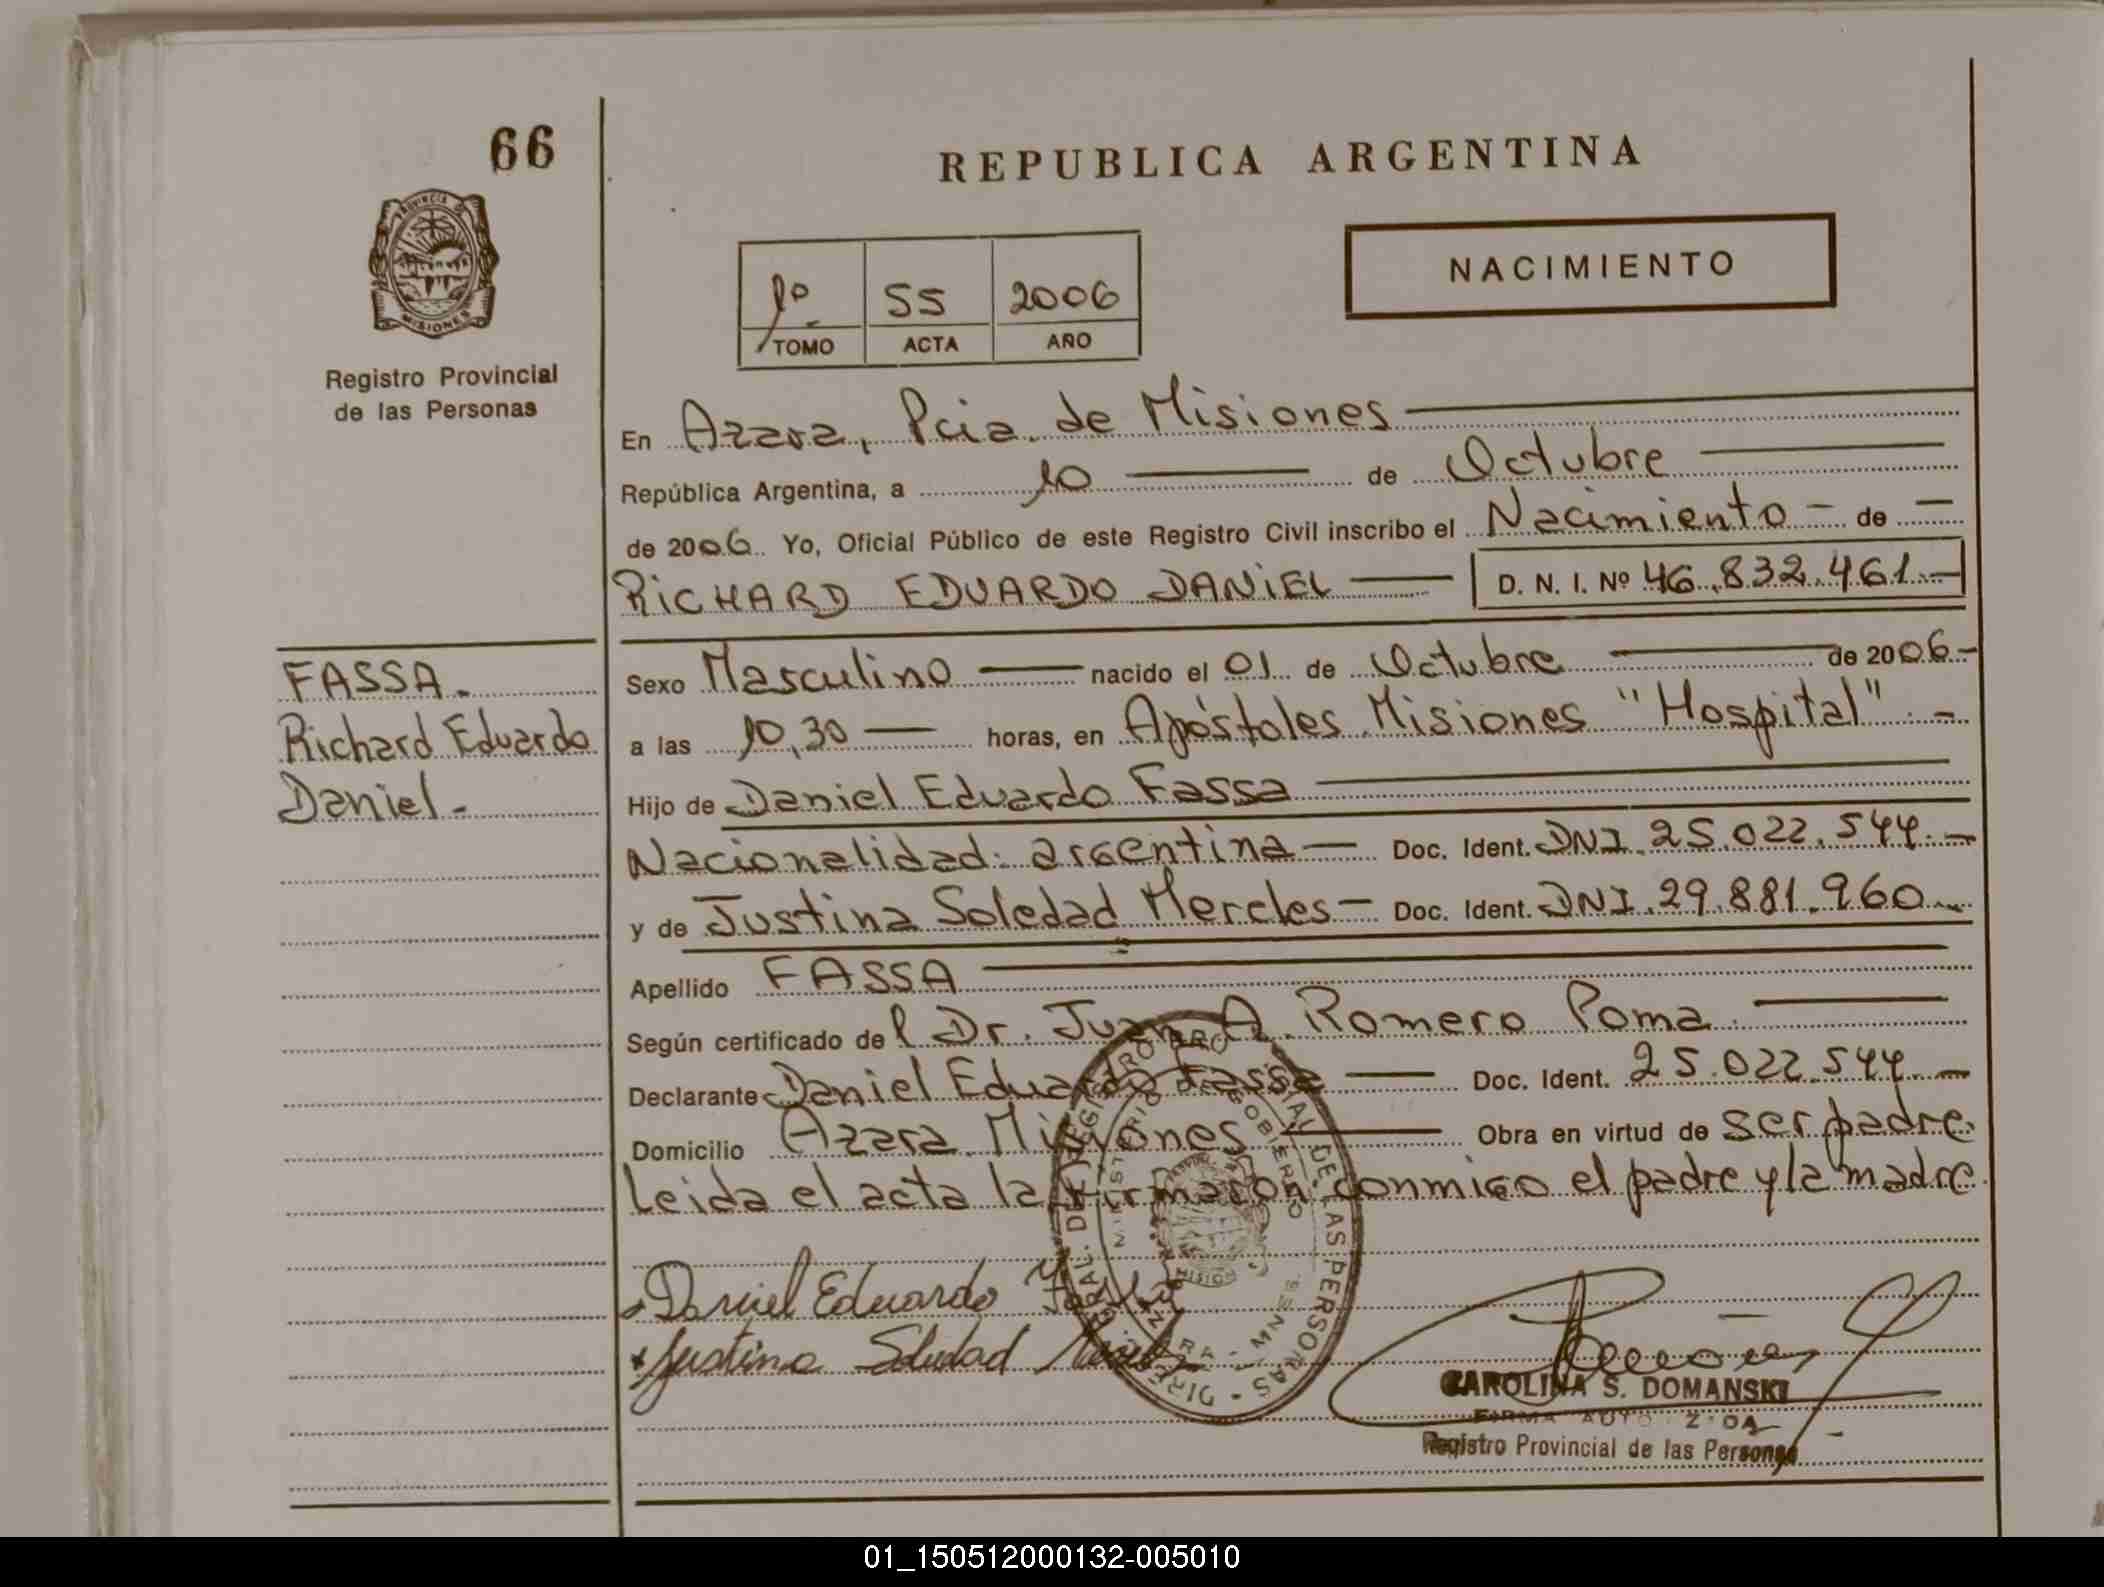 66
PROVINCIA DE
MISIONES
Registro Provincial
de las Personas
REPUBLICA ARGENTINA
1º 55 2006
TOMO ACTA AÑO
NACIMIENTO
En Azara, Pcia. de Misiones
República Argentina, a 10 de Octubre
de 2006. Yo, Oficial Público de este Registro Civil inscribo el Nacimiento - de -
RICHARD EDUARDO DANIEL D. N. I. Nº 46.832.461.-
FASSA.
Richard Eduardo
Daniel.-
Sexo Masculino nacido el 01 de Octubre de 2006.-
a las 10,30 horas, en Apóstoles Misiones "Hospital" -
Hijo de Daniel Eduardo Fassa
Nacionalidad: argentina Doc. Ident. DNI. 25.022.544.-
y de Justina Soledad Mereles - Doc. Ident. DNI. 29.881.960.-
Apellido FASSA
Según certificado del Dr. Juan A. Romero Poma
Declarante Daniel Eduardo Fassa Doc. Ident. 25.022.544.-
Domicilio Azara Misiones Obra en virtud de ser padre.
Leida el acta la firmaron conmigo el padre y la madre.
Daniel Eduardo Fassa
Justina Soledad Mereles
CAROLINA S. DOMANSKI
FIRMA AUTORIZADA
Registro Provincial de las Personas
01_150512000132-005010